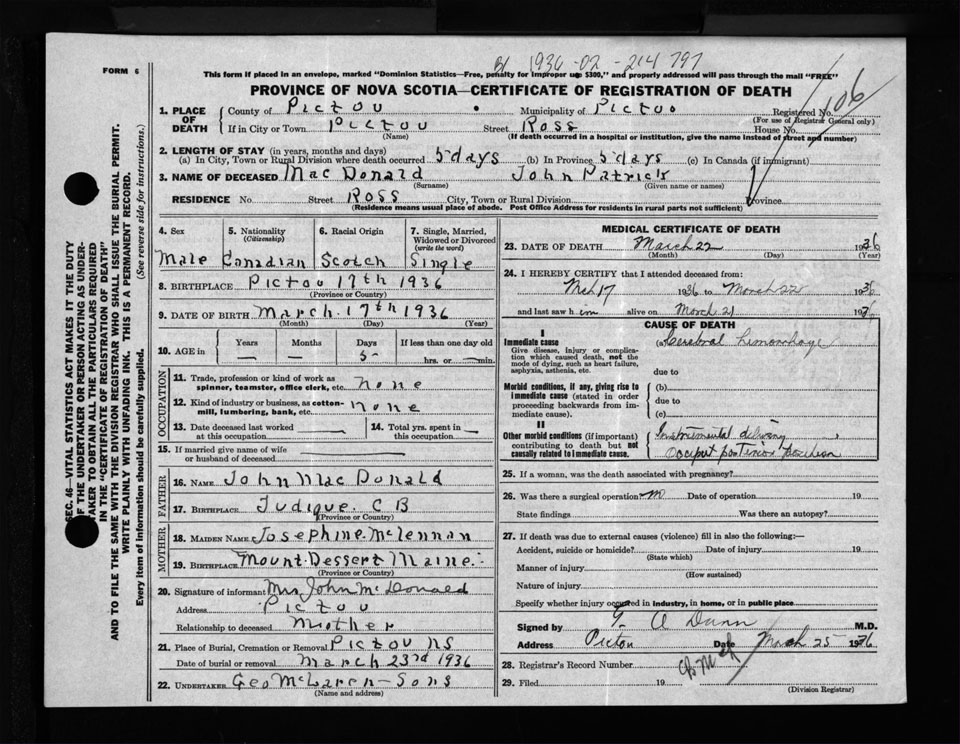 1936-02-214797
FORM 6
This form if placed in an envelope, marked "Dominion Statistics—Free, penalty for improper use $300," and properly addressed will pass through the mail "FREE"
PROVINCE OF NOVA SCOTIA—CERTIFICATE OF REGISTRATION OF DEATH
1. PLACE OF DEATH
County of Pictou Municipality of Pictou Registered No. 106
(For use of Registrar General only)
If in City or Town Pictou Street Ross House No.
(Name) (If death occurred in a hospital or institution, give the name instead of street and number)
2. LENGTH OF STAY (in years, months and days)
(a) In City, Town or Rural Division where death occurred 5 days (b) In Province 5 days (c) In Canada (if immigrant)
3. NAME OF DECEASED Mac Donald John Patrick
(Surname) (Given name or names)
RESIDENCE No. Street Ross City, Town or Rural Division Province
(Residence means usual place of abode. Post Office Address for residents in rural parts not sufficient)
SEC. 46—VITAL STATISTICS ACT MAKES IT THE DUTY
OF THE UNDERTAKER OR PERSON ACTING AS UNDER-
TAKER TO OBTAIN ALL THE PARTICULARS REQUIRED
IN THE "CERTIFICATE OF REGISTRATION OF DEATH"
AND TO FILE THE SAME WITH THE DIVISION REGISTRAR WHO SHALL ISSUE THE BURIAL PERMIT.
WRITE PLAINLY WITH UNFADING INK. THIS IS A PERMANENT RECORD.
Every item of Information should be carefully supplied. (See reverse side for instructions.)
4. Sex 5. Nationality (Citizenship) 6. Racial Origin 7. Single, Married, Widowed or Divorced (write the word)
Male Canadian Scotch Single
8. BIRTHPLACE Pictou 17th 1936
(Province or Country)
9. DATE OF BIRTH March 17th 1936
(Month) (Day) (Year)
10. AGE in Years Months Days If less than one day old
— — 5 hrs. or min.
OCCUPATION
11. Trade, profession or kind of work as spinner, teamster, office clerk, etc. none
12. Kind of industry or business, as cotton-mill, lumbering, bank, etc. none
13. Date deceased last worked at this occupation — 14. Total yrs. spent in this occupation —
15. If married give name of wife or husband of deceased —
FATHER
16. NAME John Mac Donald
17. BIRTHPLACE Judique. C B
(Province or Country)
MOTHER
18. MAIDEN NAME Josephine. McLennan
19. BIRTHPLACE Mount. Dessert Maine.
(Province or Country)
20. Signature of informant Mrs John McDonald
Address Pictou
Relationship to deceased Mother
21. Place of Burial, Cremation or Removal Pictou NS
Date of burial or removal March 23rd 1936
22. UNDERTAKER Geo McLaren - Sons
(Name and address)
MEDICAL CERTIFICATE OF DEATH
23. DATE OF DEATH March 22 1936
(Month) (Day) (Year)
24. I HEREBY CERTIFY that I attended deceased from:
Mch 17 1936 to March 22 1936
and last saw him alive on March 21 1936
CAUSE OF DEATH
I
Immediate cause (a) Cerebral hemorrhage
Give disease, injury or complication which caused death, not the mode of dying, such as heart failure, asphyxia, asthenia, etc.
due to
Morbid conditions, if any, giving rise to immediate cause (stated in order proceeding backwards from immediate cause).
(b)
due to
(c)
II
Other morbid conditions (if important) contributing to death but not causally related to immediate cause.
Instrumental delivery
Occiput posterior position
25. If a woman, was the death associated with pregnancy?
26. Was there a surgical operation? no Date of operation 19
State findings Was there an autopsy?
27. If death was due to external causes (violence) fill in also the following:—
Accident, suicide or homicide? Date of injury 19
(State which)
Manner of injury
(How sustained)
Nature of injury
Specify whether injury occurred in industry, in home, or in public place
Signed by G. A Dunn M.D.
Address Pictou Date March 25 1936
28. Registrar's Record Number
29. Filed 19
(Division Registrar)